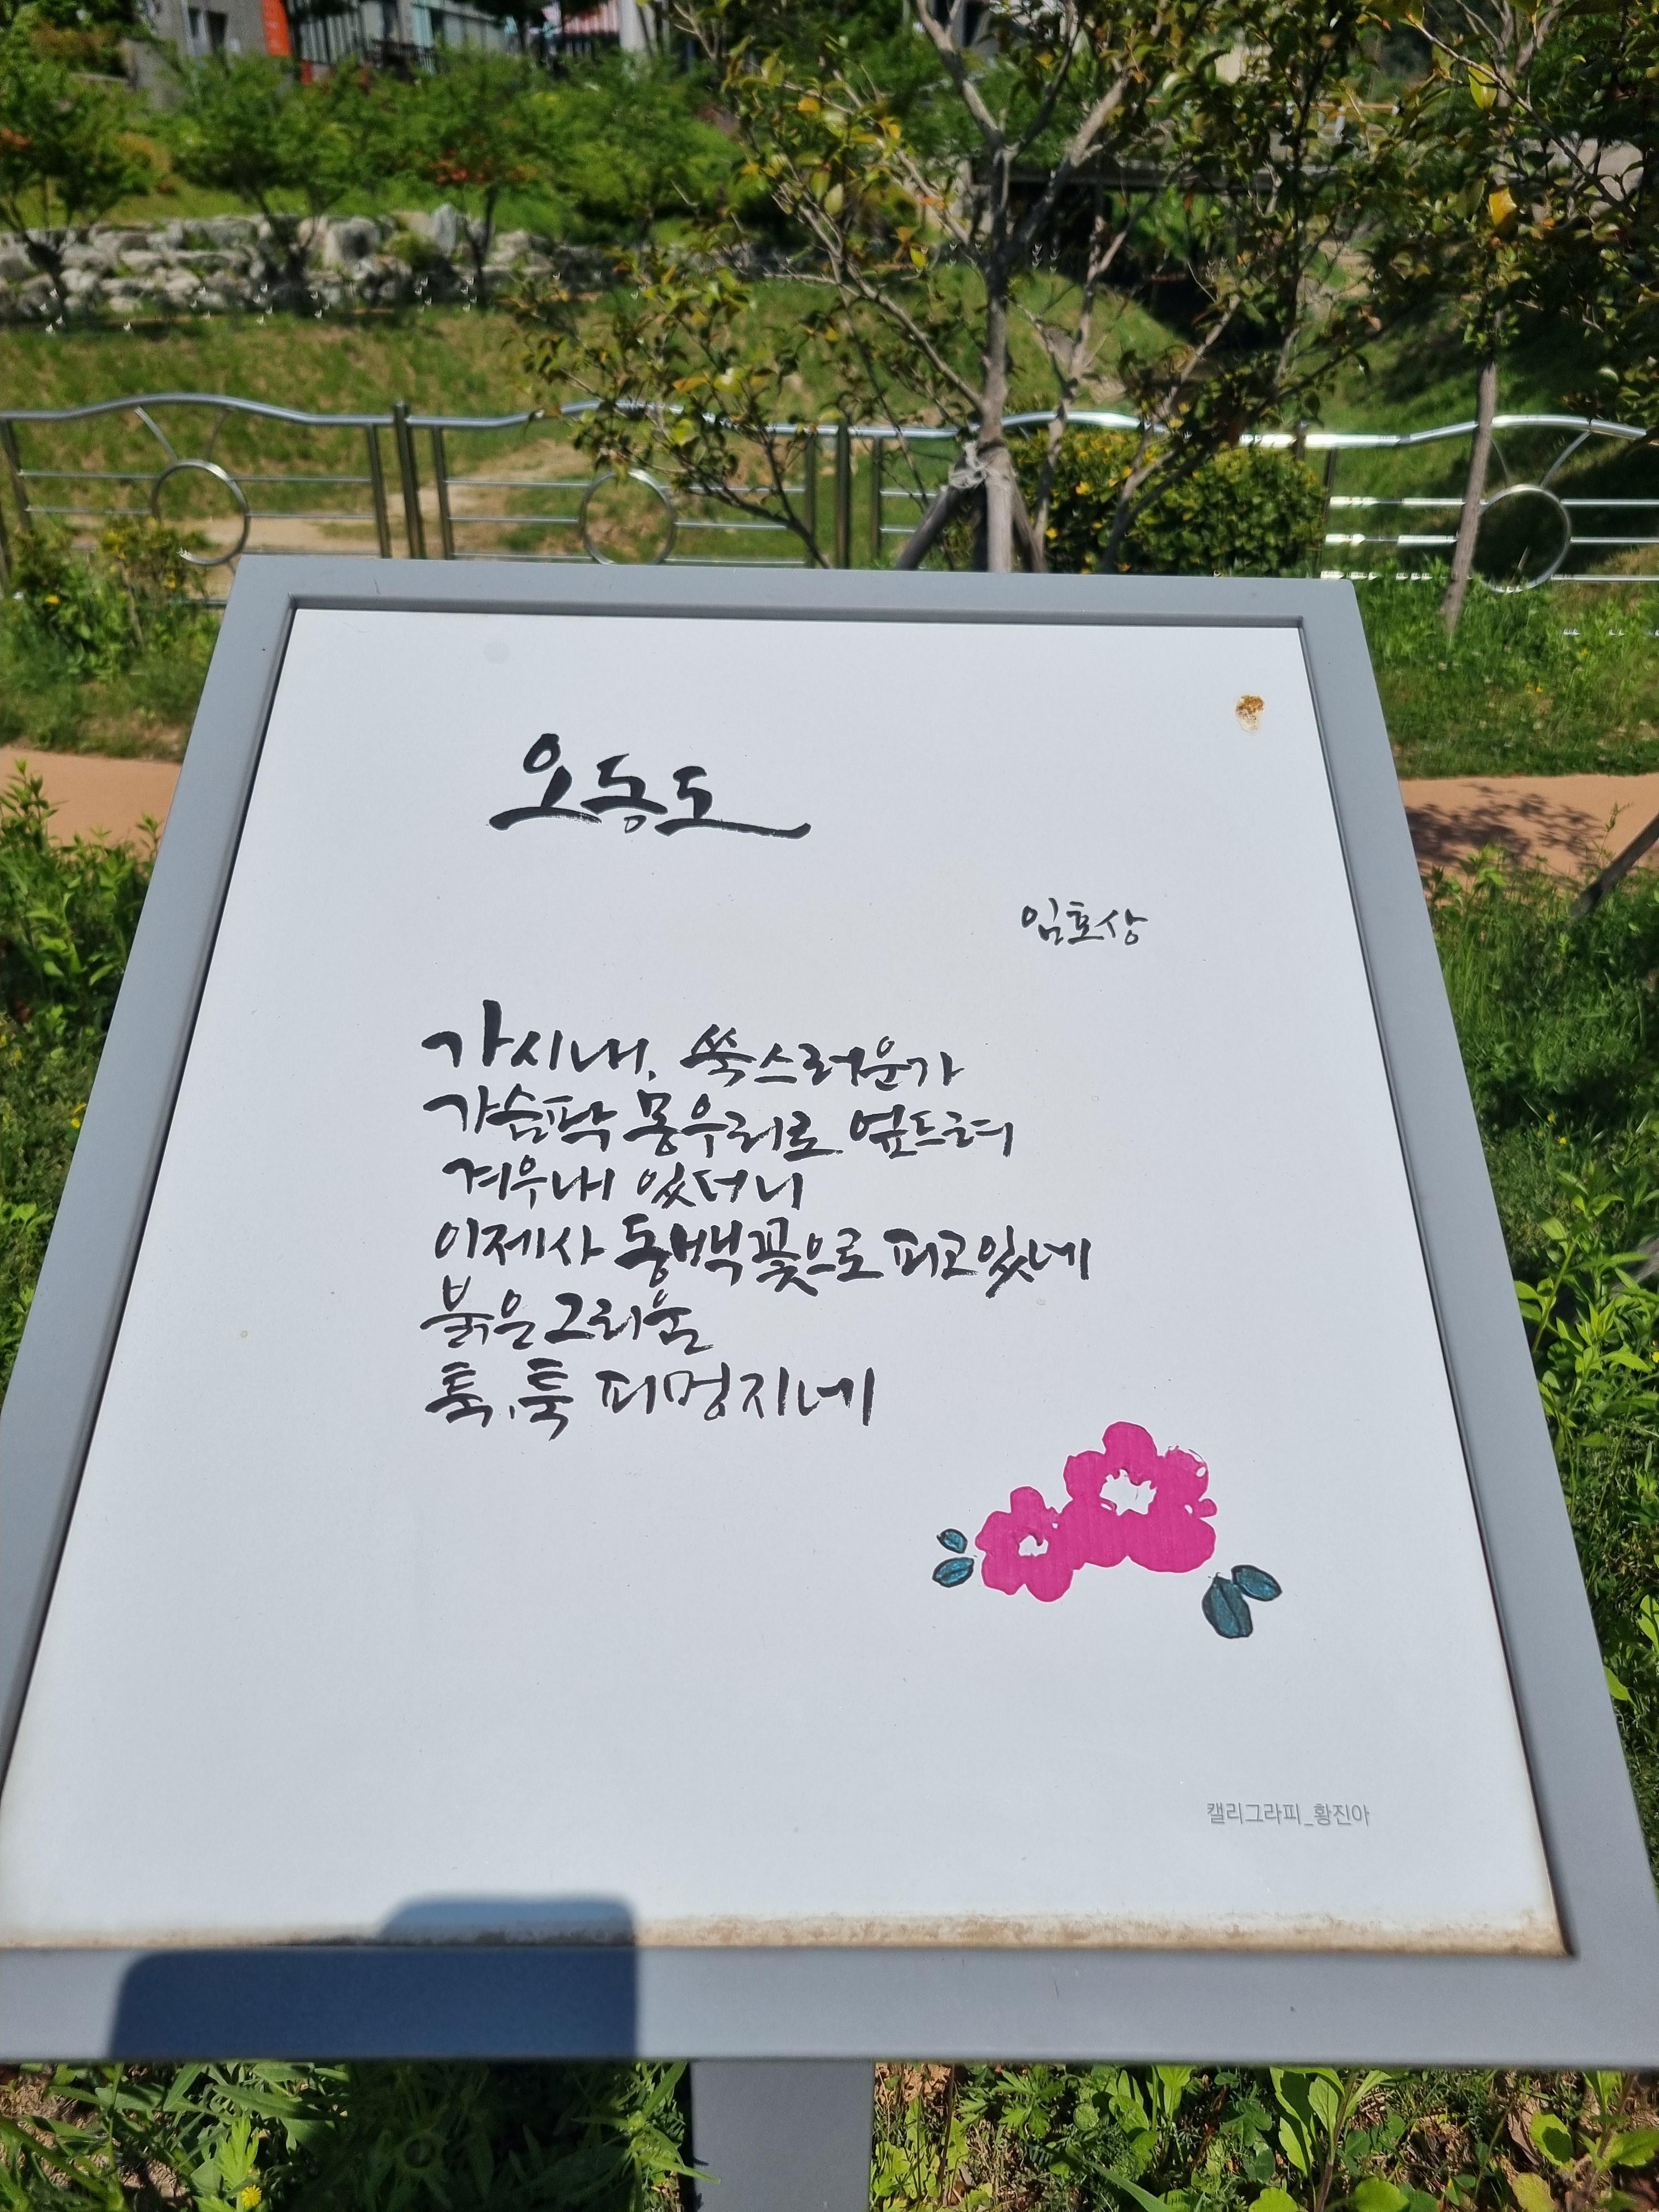 오동도
임호상
가시내, 쑥스러운가
가슴팍 몽우리로 엎드려
겨우내 있더니
이제사 동백꽃으로 피고있네
붉은 그리움
툭, 툭 피멍지네
캘리그라피_황진아